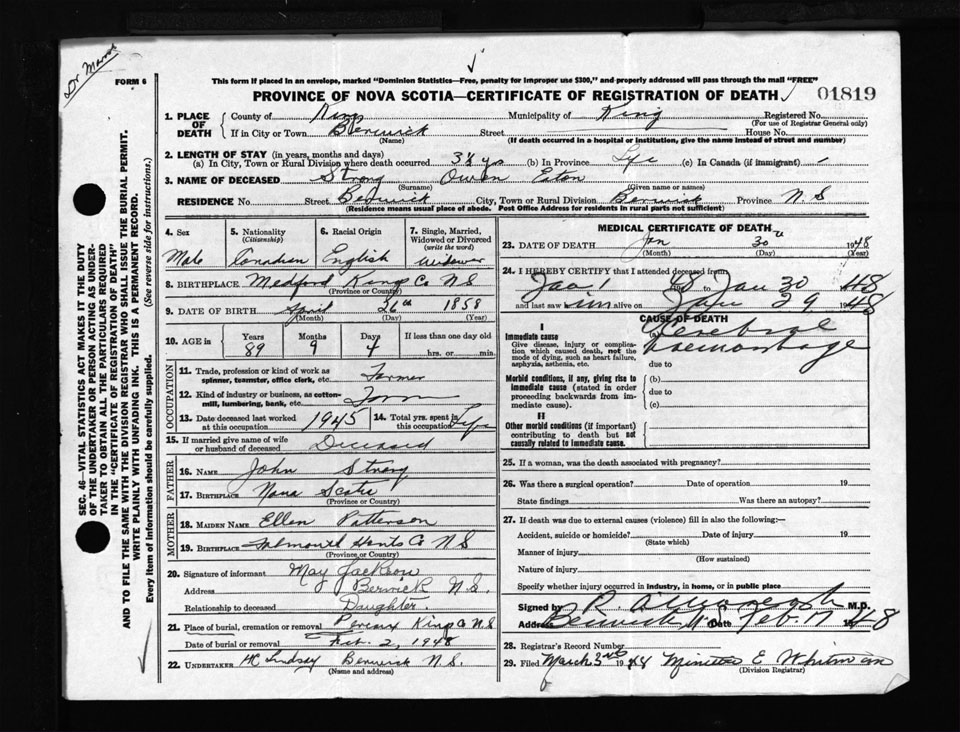 Dr Marr
FORM 6
This form if placed in an envelope, marked "Dominion Statistics—Free, penalty for improper use $300," and properly addressed will pass through the mail "FREE"
PROVINCE OF NOVA SCOTIA—CERTIFICATE OF REGISTRATION OF DEATH 01819
1. PLACE OF DEATH
County of Kings Municipality of King Registered No.
(For use of Registrar General only)
If in City or Town Berwick Street House No.
(Name) (If death occurred in a hospital or institution, give the name instead of street and number)
2. LENGTH OF STAY (in years, months and days)
(a) In City, Town or Rural Division where death occurred yrs (b) In Province Life (c) In Canada (if immigrant)
3. NAME OF DECEASED Strong Owen Eaton
(Surname) (Given name or names)
RESIDENCE No. Street Berwick City, Town or Rural Division Berwick Province N.S
(Residence means usual place of abode. Post Office Address for residents in rural parts not sufficient)
4. Sex 5. Nationality (Citizenship) 6. Racial Origin 7. Single, Married, Widowed or Divorced (write the word)
Male Canadian English Widower
8. BIRTHPLACE Medford Kings Co N S
(Province or Country)
9. DATE OF BIRTH April 26th 1858
(Month) (Day) (Year)
10. AGE in Years Months Days If less than one day old
89 9 4 hrs. or min.
OCCUPATION
11. Trade, profession or kind of work as spinner, teamster, office clerk, etc. Farmer
12. Kind of industry or business, as cotton-mill, lumbering, bank, etc. Farm
13. Date deceased last worked at this occupation 1945 14. Total yrs. spent in this occupation Life
15. If married give name of wife or husband of deceased Deceased
FATHER
16. NAME John Strong
17. BIRTHPLACE Nova Scotia
(Province or Country)
MOTHER
18. MAIDEN NAME Ellen Patterson
19. BIRTHPLACE Falmouth Hants Co N S
(Province or Country)
20. Signature of informant May Jackson
Address Berwick N.S.
Relationship to deceased Daughter.
21. Place of burial, cremation or removal Pereaux Kings Co N S
Date of burial or removal Feb. 2, 1948
22. UNDERTAKER HC Lindsey Berwick N.S.
(Name and address)
MEDICAL CERTIFICATE OF DEATH
23. DATE OF DEATH Jan 30 1948
(Month) (Day) (Year)
24. I HEREBY CERTIFY that I attended deceased from
Jan 1 48 to Jan 30 48
and last saw him alive on Jan 29 1948
CAUSE OF DEATH
I
Immediate cause
Give disease, injury or complication which caused death, not the mode of dying, such as heart failure, asphyxia, asthenia, etc.
(a) Cerebral Haemorrhage
due to
Morbid conditions, if any, giving rise to immediate cause (stated in order proceeding backwards from immediate cause).
(b)
due to
(c)
II
Other morbid conditions (if important) contributing to death but not causally related to immediate cause.
25. If a woman, was the death associated with pregnancy?
26. Was there a surgical operation? Date of operation 19
State findings Was there an autopsy?
27. If death was due to external causes (violence) fill in also the following:—
Accident, suicide or homicide? Date of injury 19
(State which)
Manner of injury
(How sustained)
Nature of injury
Specify whether injury occurred in industry, in home, or in public place
Signed by M.D.
Address Berwick N.S Date Feb. 17 1948
28. Registrar's Record Number
29. Filed March 3rd 1948 E Whitman
(Division Registrar)
SEC. 46—VITAL STATISTICS ACT MAKES IT THE DUTY
OF THE UNDERTAKER OR PERSON ACTING AS UNDER-
TAKER TO OBTAIN ALL THE PARTICULARS REQUIRED
IN THE "CERTIFICATE OF REGISTRATION OF DEATH"
AND TO FILE THE SAME WITH THE DIVISION REGISTRAR WHO SHALL ISSUE THE BURIAL PERMIT.
WRITE PLAINLY WITH UNFADING INK. THIS IS A PERMANENT RECORD.
Every item of information should be carefully supplied. (See reverse side for instructions.)